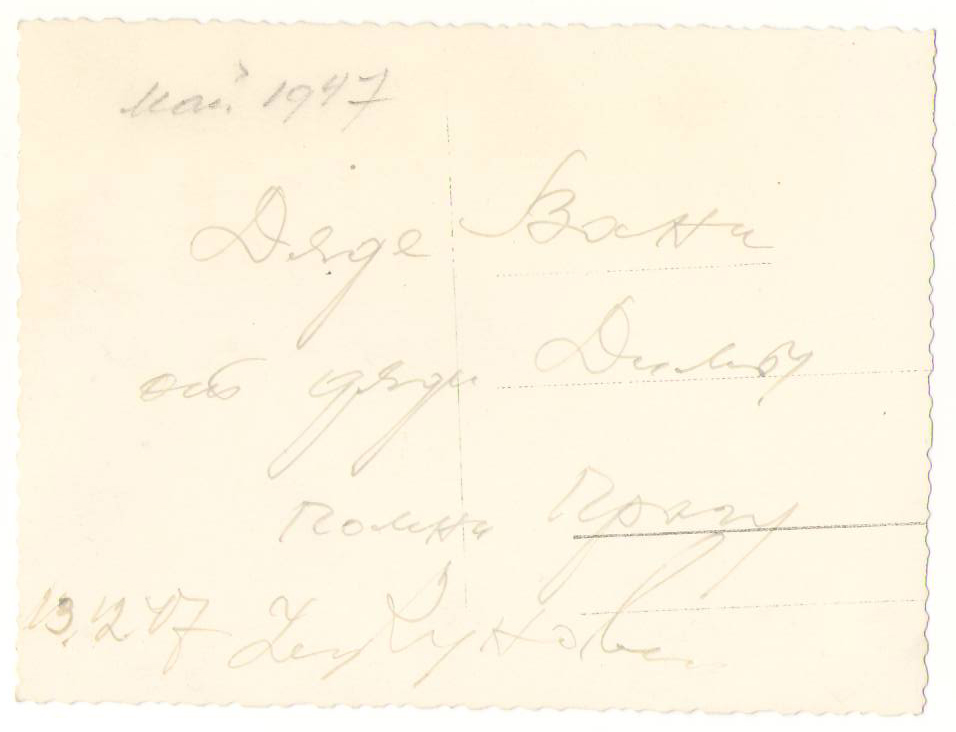 май 1947
Дяде Вани
от дяди Димы
Помни Прагу
13.12.47